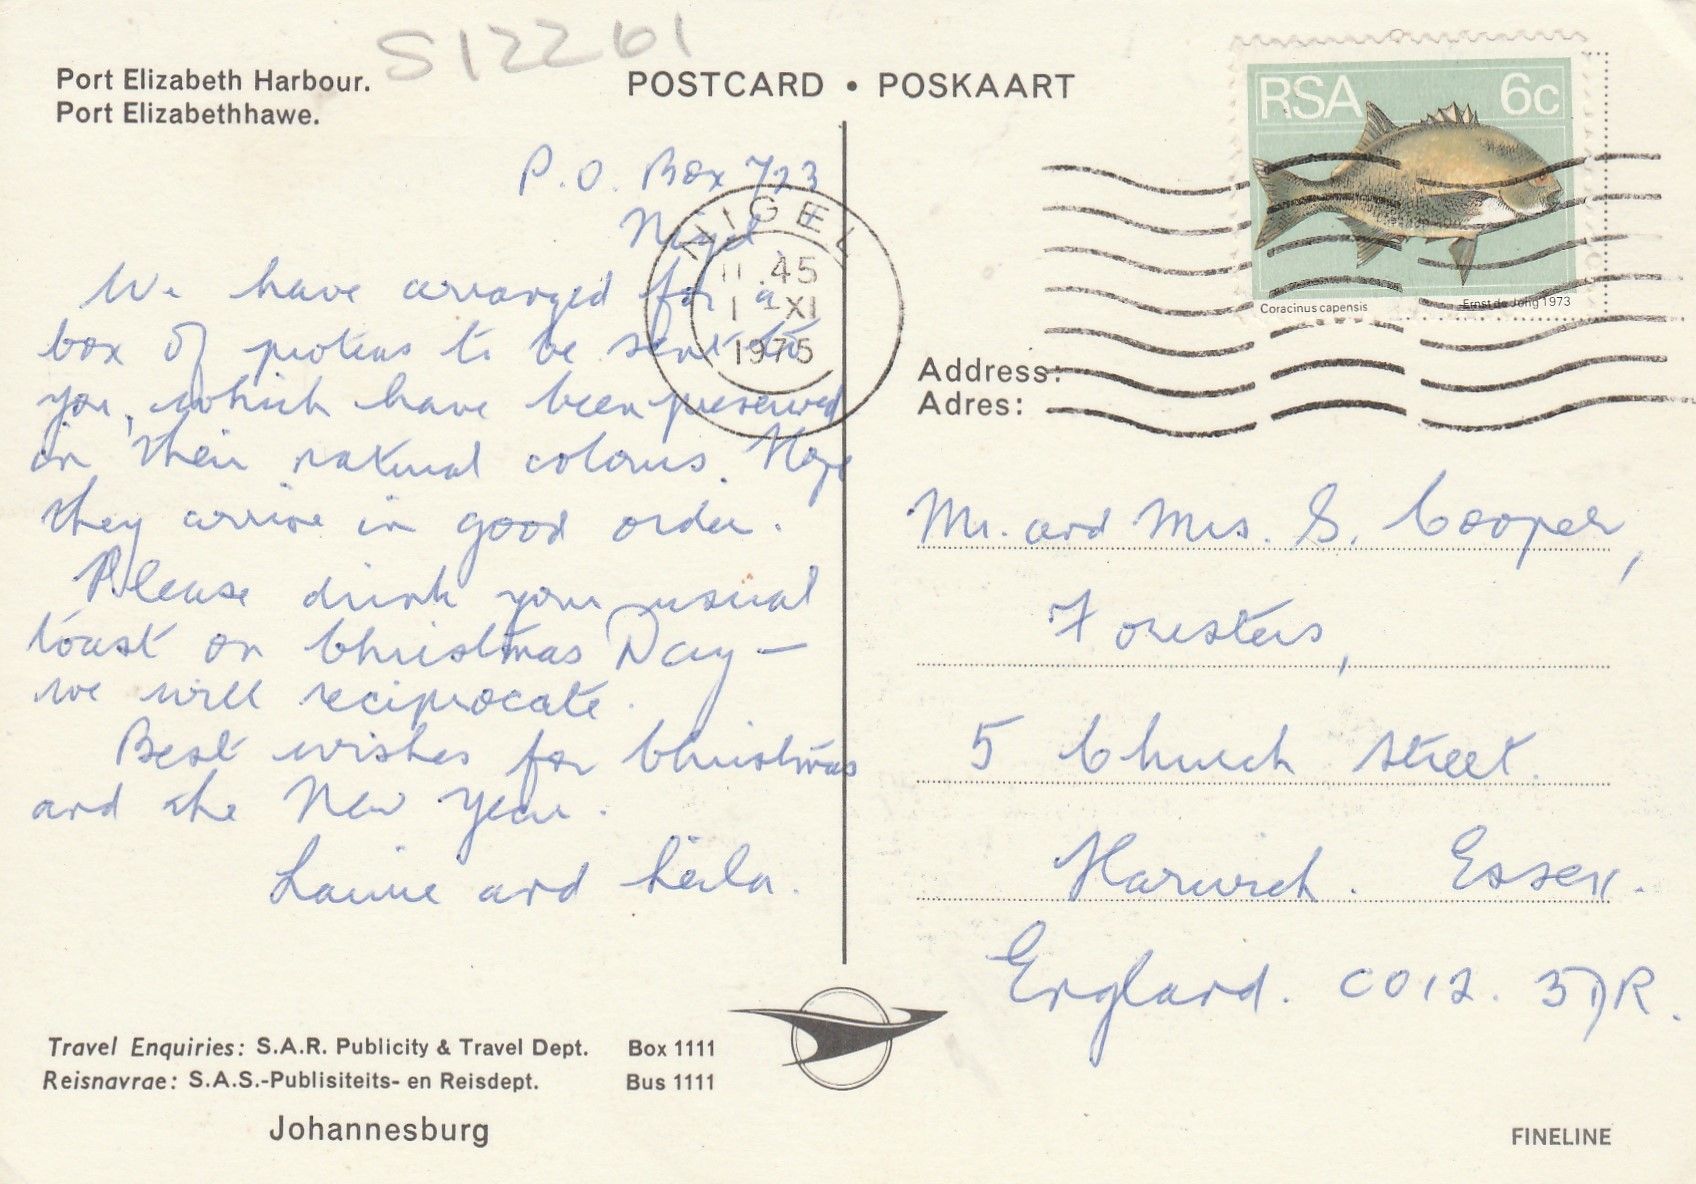 S12261
Port Elizabeth Harbour.
Port Elizabethhawe.
POSTCARD • POSKAART
RSA 6c
Coracinus capensis
Ernst de Jong 1973
NIGEL
11.45
1 -XI
1975
P.O. Box 723
Nigel
We have arranged for a
box of proteas to be sent to
you, which have been preserved
in their natural colours. Hope
they arrive in good order.
Please drink your usual
toast on Christmas Day –
we will reciprocate.
Best wishes for Christmas
and the New Year.
Laurie and Leila.
Address:
Adres:
Mr. and Mrs. S. Cooper,
Foresters,
5 Church Street.
Harwich. Essex.
England. CO12. 3DR.
Travel Enquiries: S.A.R. Publicity & Travel Dept. Box 1111
Reisnavrae: S.A.S.-Publisiteits- en Reisdept. Bus 1111
Johannesburg
FINELINE